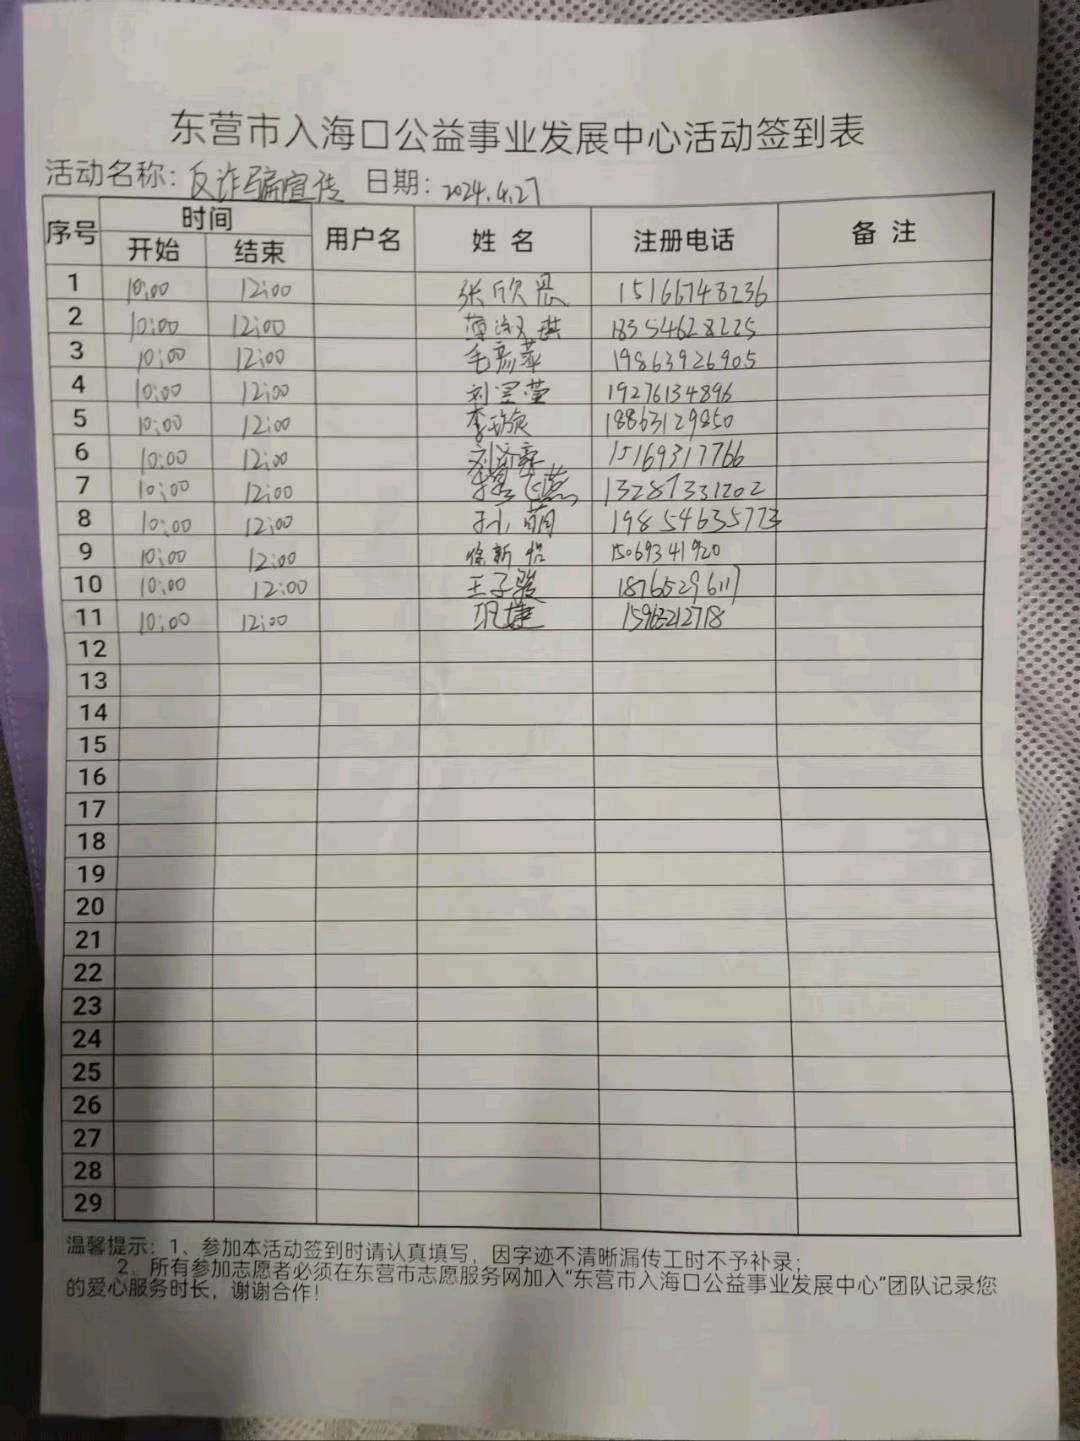 东营市入海口公益事业发展中心活动签到表
活动名称: 反诈骗宣传 日期: 2024.4.27
序号 时间 用户名 姓名 注册电话 备注
开始 结束
1 10:00 12:00 张欣恩 15166748236
2 10:00 12:00 18354628225
3 10:00 12:00 毛彦苹 19863926905
4 10:00 12:00 刘昱莹 19276134896
5 10:00 12:00 18863129850
6 10:00 12:00 15169317766
7 10:00 12:00 13287331202
8 10:00 12:00 孙萌 19854635773
9 10:00 12:00 徐新怡 15069341920
10 10:00 12:00 王子骏 18765296117
11 10:00 12:00 巩捷 15963212718
12
13
14
15
16
17
18
19
20
21
22
23
24
25
26
27
28
29
温馨提示: 1、参加本活动签到时请认真填写，因字迹不清晰漏传工时不予补录；
2、所有参加志愿者必须在东营市志愿服务网加入“东营市入海口公益事业发展中心”团队记录您
的爱心服务时长，谢谢合作！